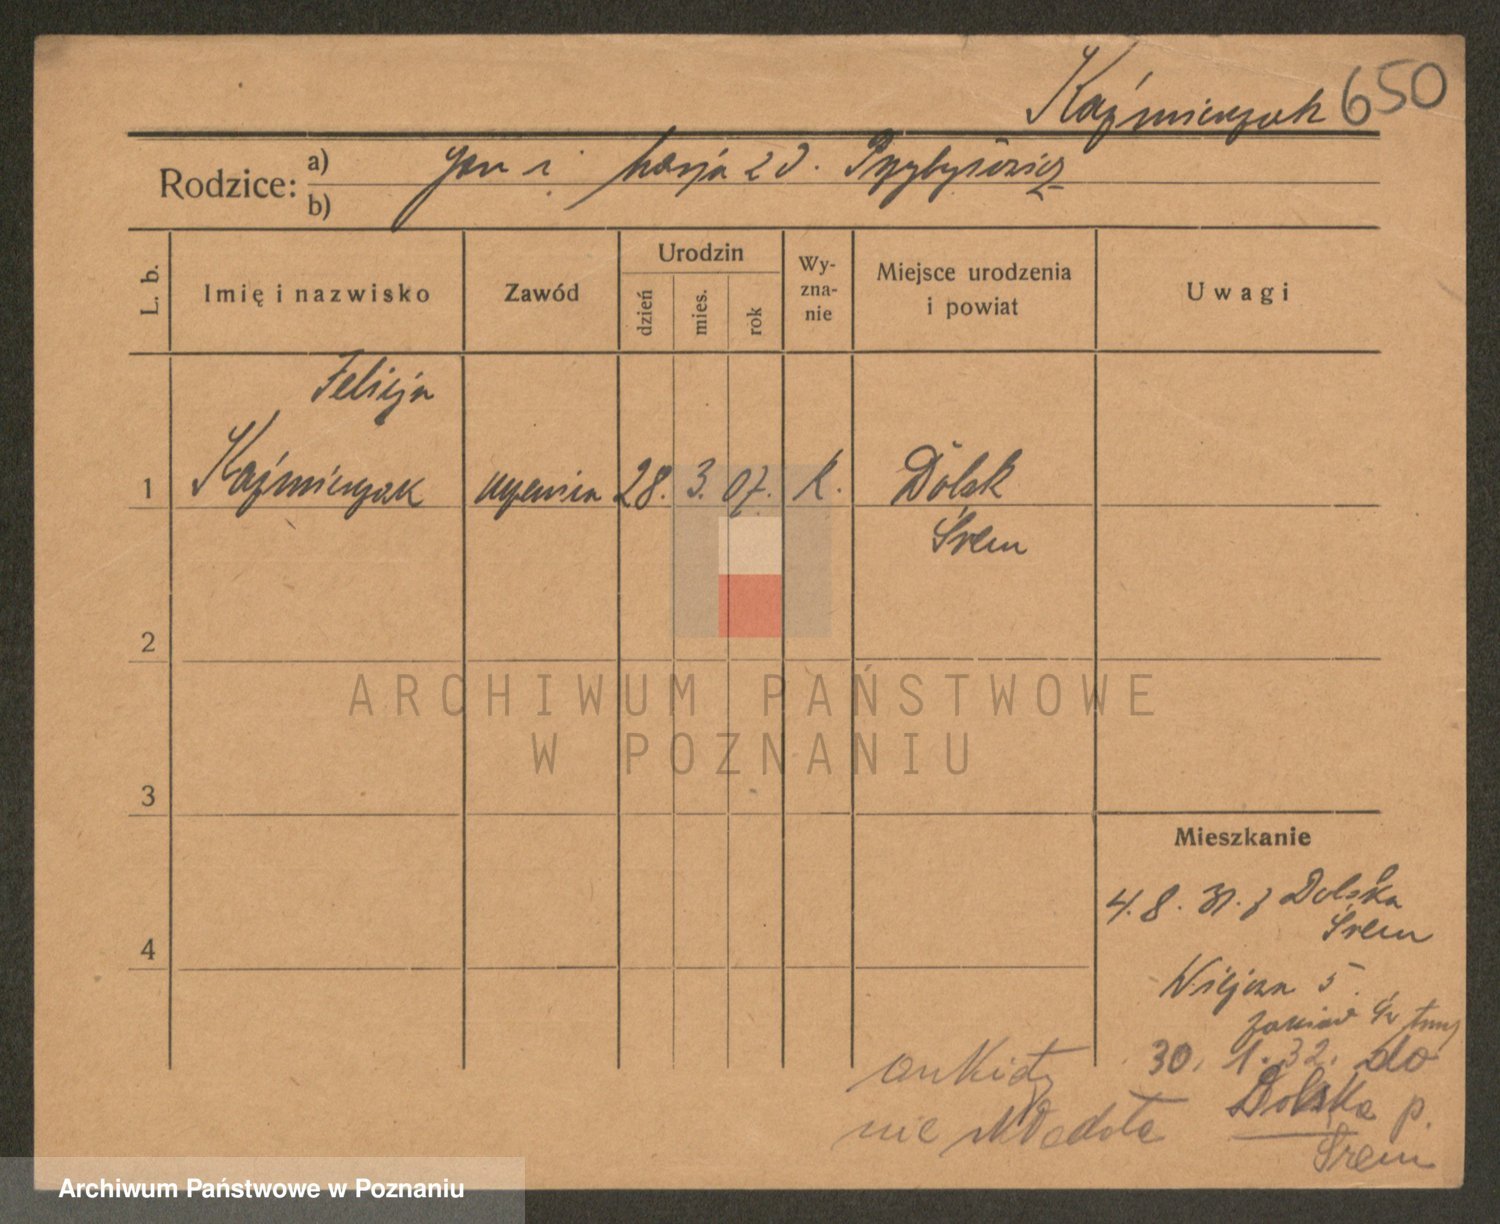 Kaźmierczak 650
Rodzice: a) Jan i Marja z d. Przybysiewicz
b)
L. b.
Imię i nazwisko
Zawód
Urodzin
dzień
mies.
rok
Wy-
zna-
nie
Miejsce urodzenia
i powiat
Uwagi
Felicja
1 Kaźmierczak uczenica 28. 3. 07. k. Dolsk
Śrem
2
3
4
ARCHIWUM PAŃSTWOWE
W POZNANIU
Mieszkanie
4. 8. 31. z Dolska
Śrem
Wilcza 5.
30. 1. 32. do
Dolska p.
Śrem
ankiety
nie
Archiwum Państwowe w Poznaniu